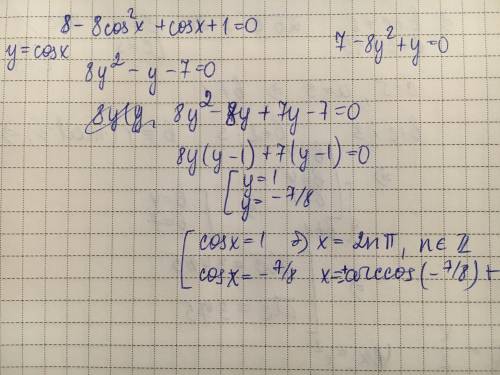 8 - 8cos²x + cosx + 1 = 0
y = cosx
7 - 8y² + y = 0
8y² - y - 7 = 0
8y² - 8y + 7y - 7 = 0
8y(y - 1) + 7(y - 1) = 0
[ y = 1
y = -7/8
[ cosx = 1 x = 2nπ, n ∈ ℤ
cosx = -7/8 x = ± arccos(-7/8) +